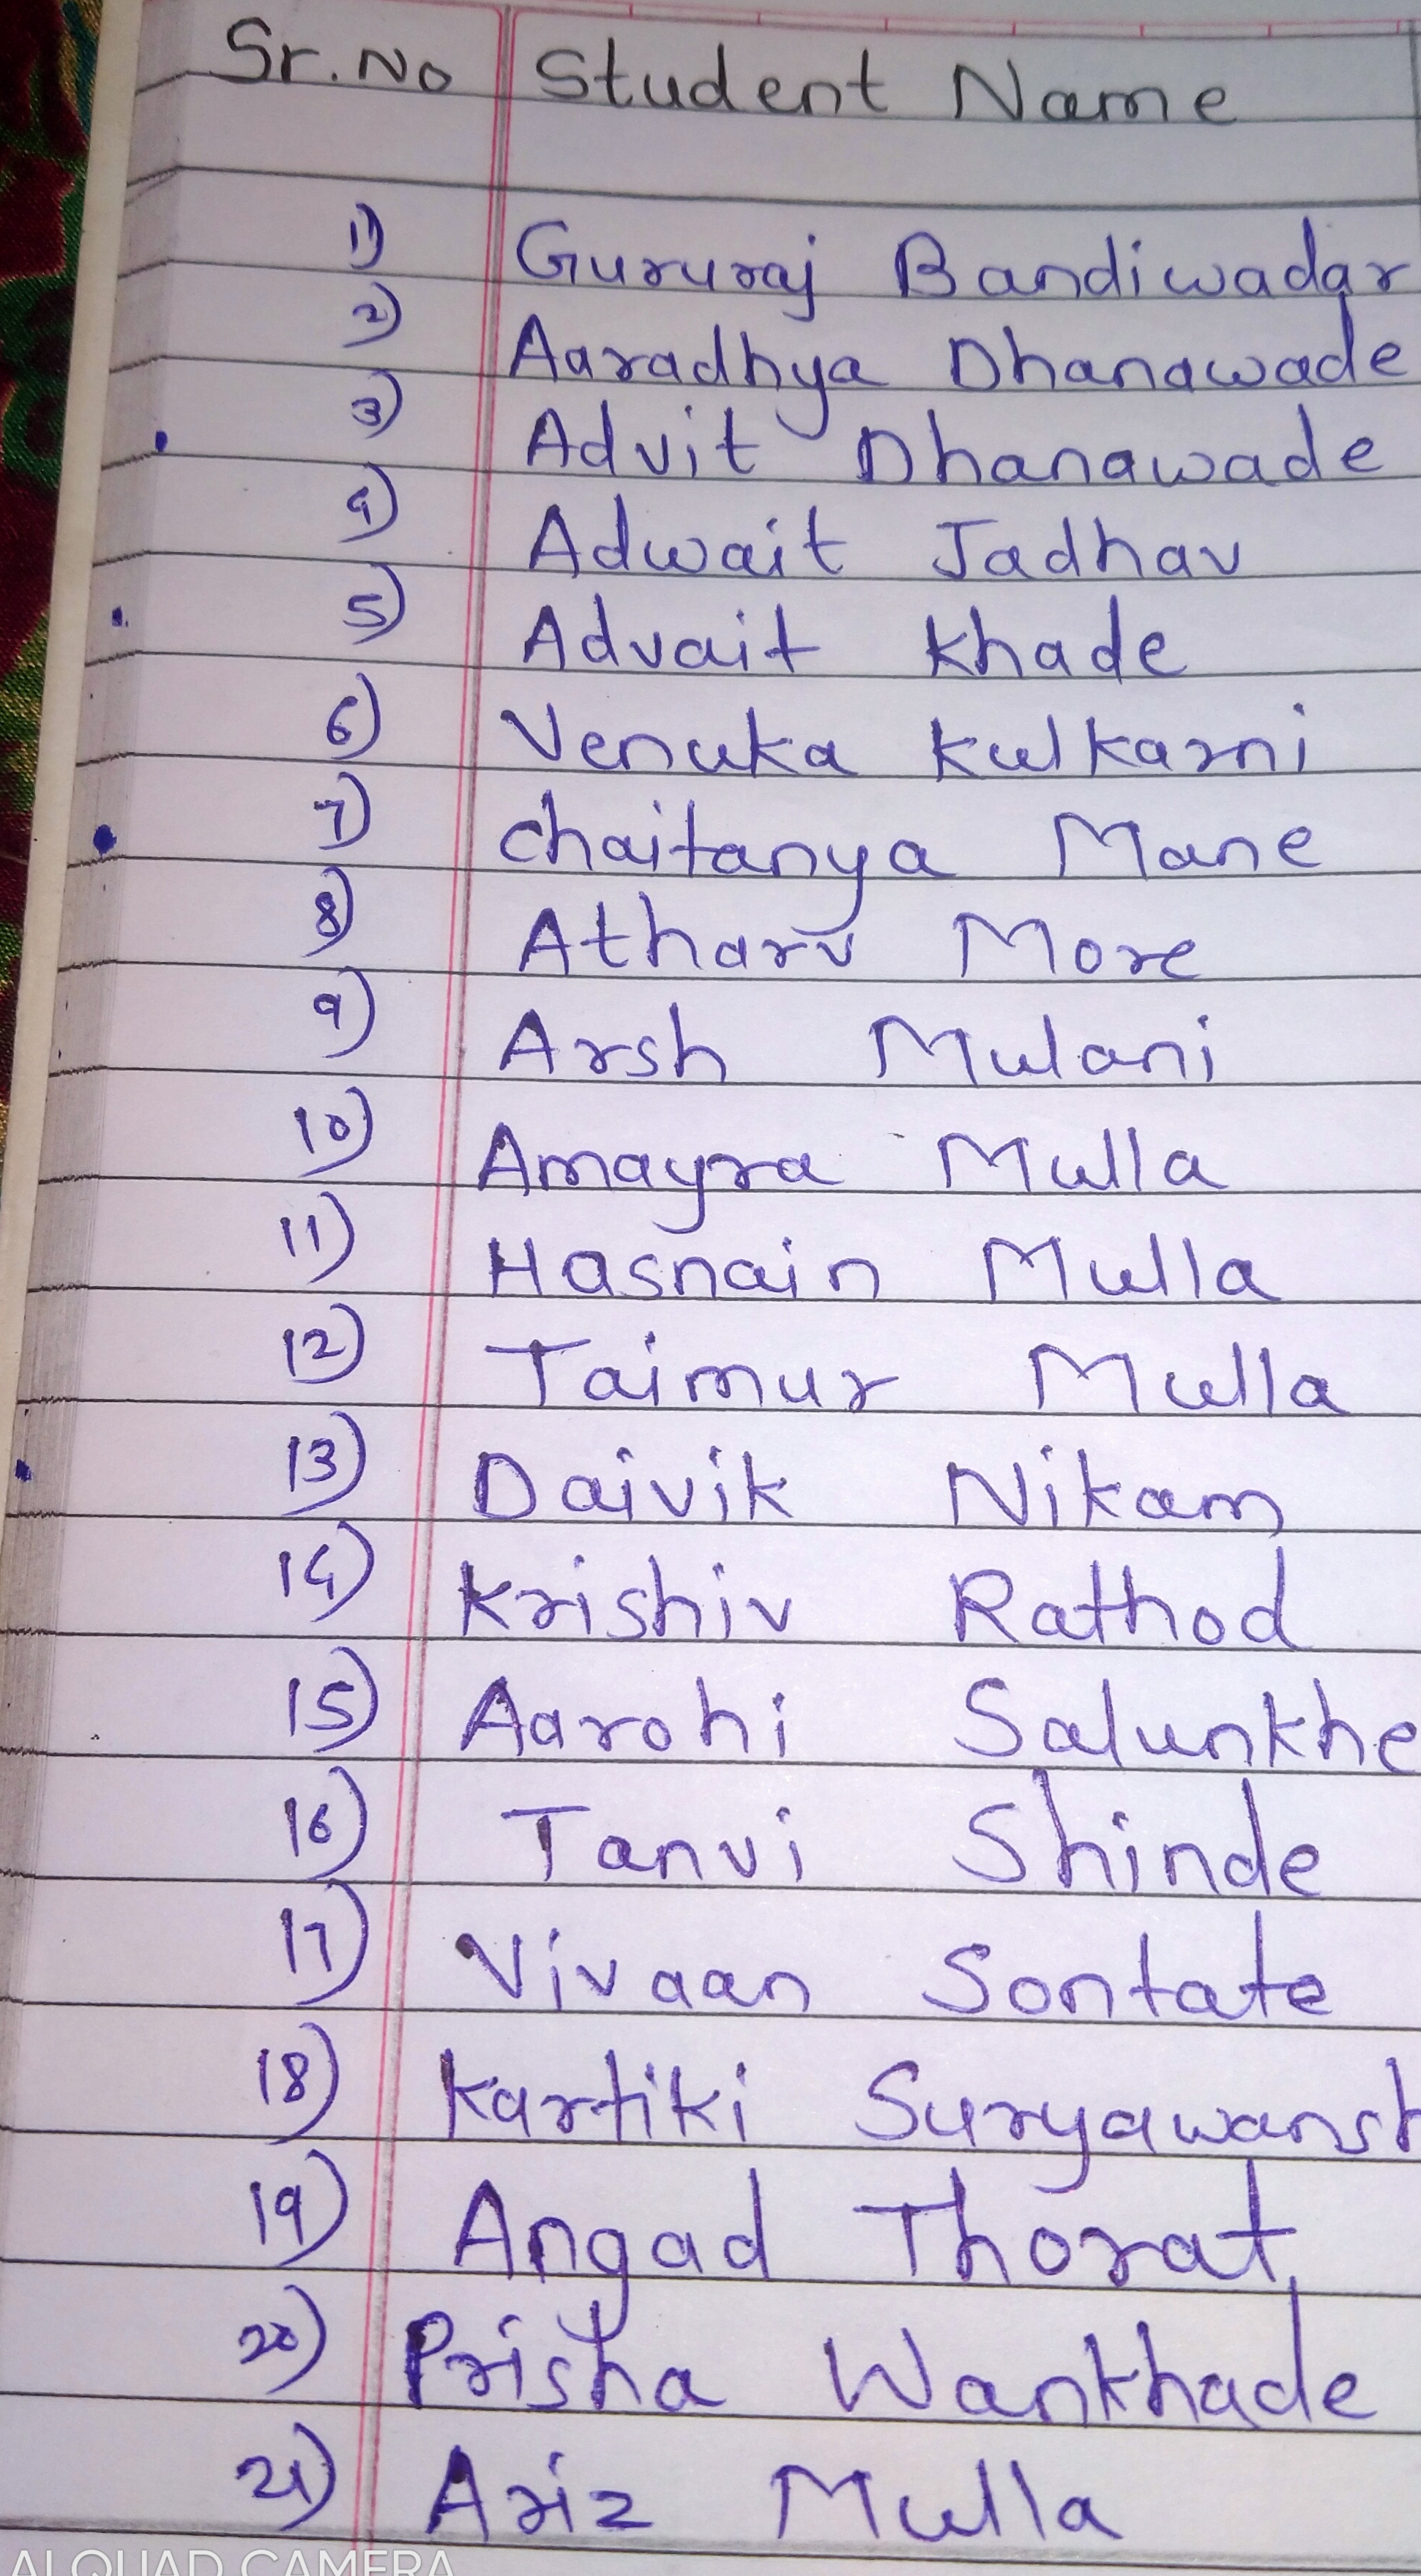 Sr.No Student Name
1) Gururaj Bandiwadar
2) Aaradhya Dhanawade
3) Advit Dhanawade
4) Adwait Jadhav
5) Advait Khade
6) Venuka Kulkarni
7) Chaitanya Mane
8) Atharv More
9) Arsh Mulani
10) Amayra Mulla
11) Hasnain Mulla
12) Taimur Mulla
13) Daivik Nikam
14) Krishiv Rathod
15) Aarohi Salunkhe
16) Tanvi Shinde
17) Vivaan Sontate
18) Kartiki Suryawansh
19) Angad Thorat
20) Prisha Wankhade
21) Ariz Mulla
AI QUAD CAMERA